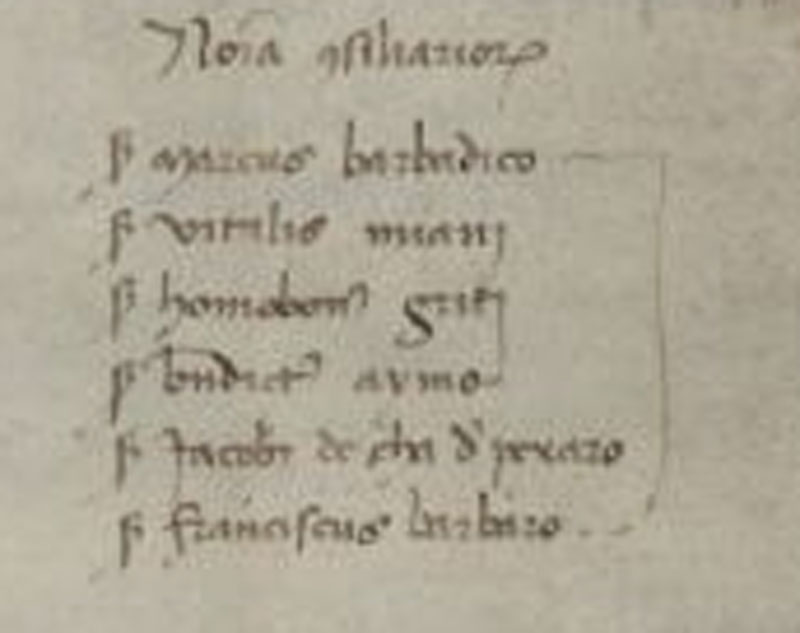 Noīa ɔsiliarioꝝ
s̄ marcus barbadico
s̄ vitalis mianj
s̄ homobonꝰ grit̄j
s̄ bn̄dictꝰ aymo
s̄ Jacobꝰ de cha d' pexaro
s̄ franciscus barbaro